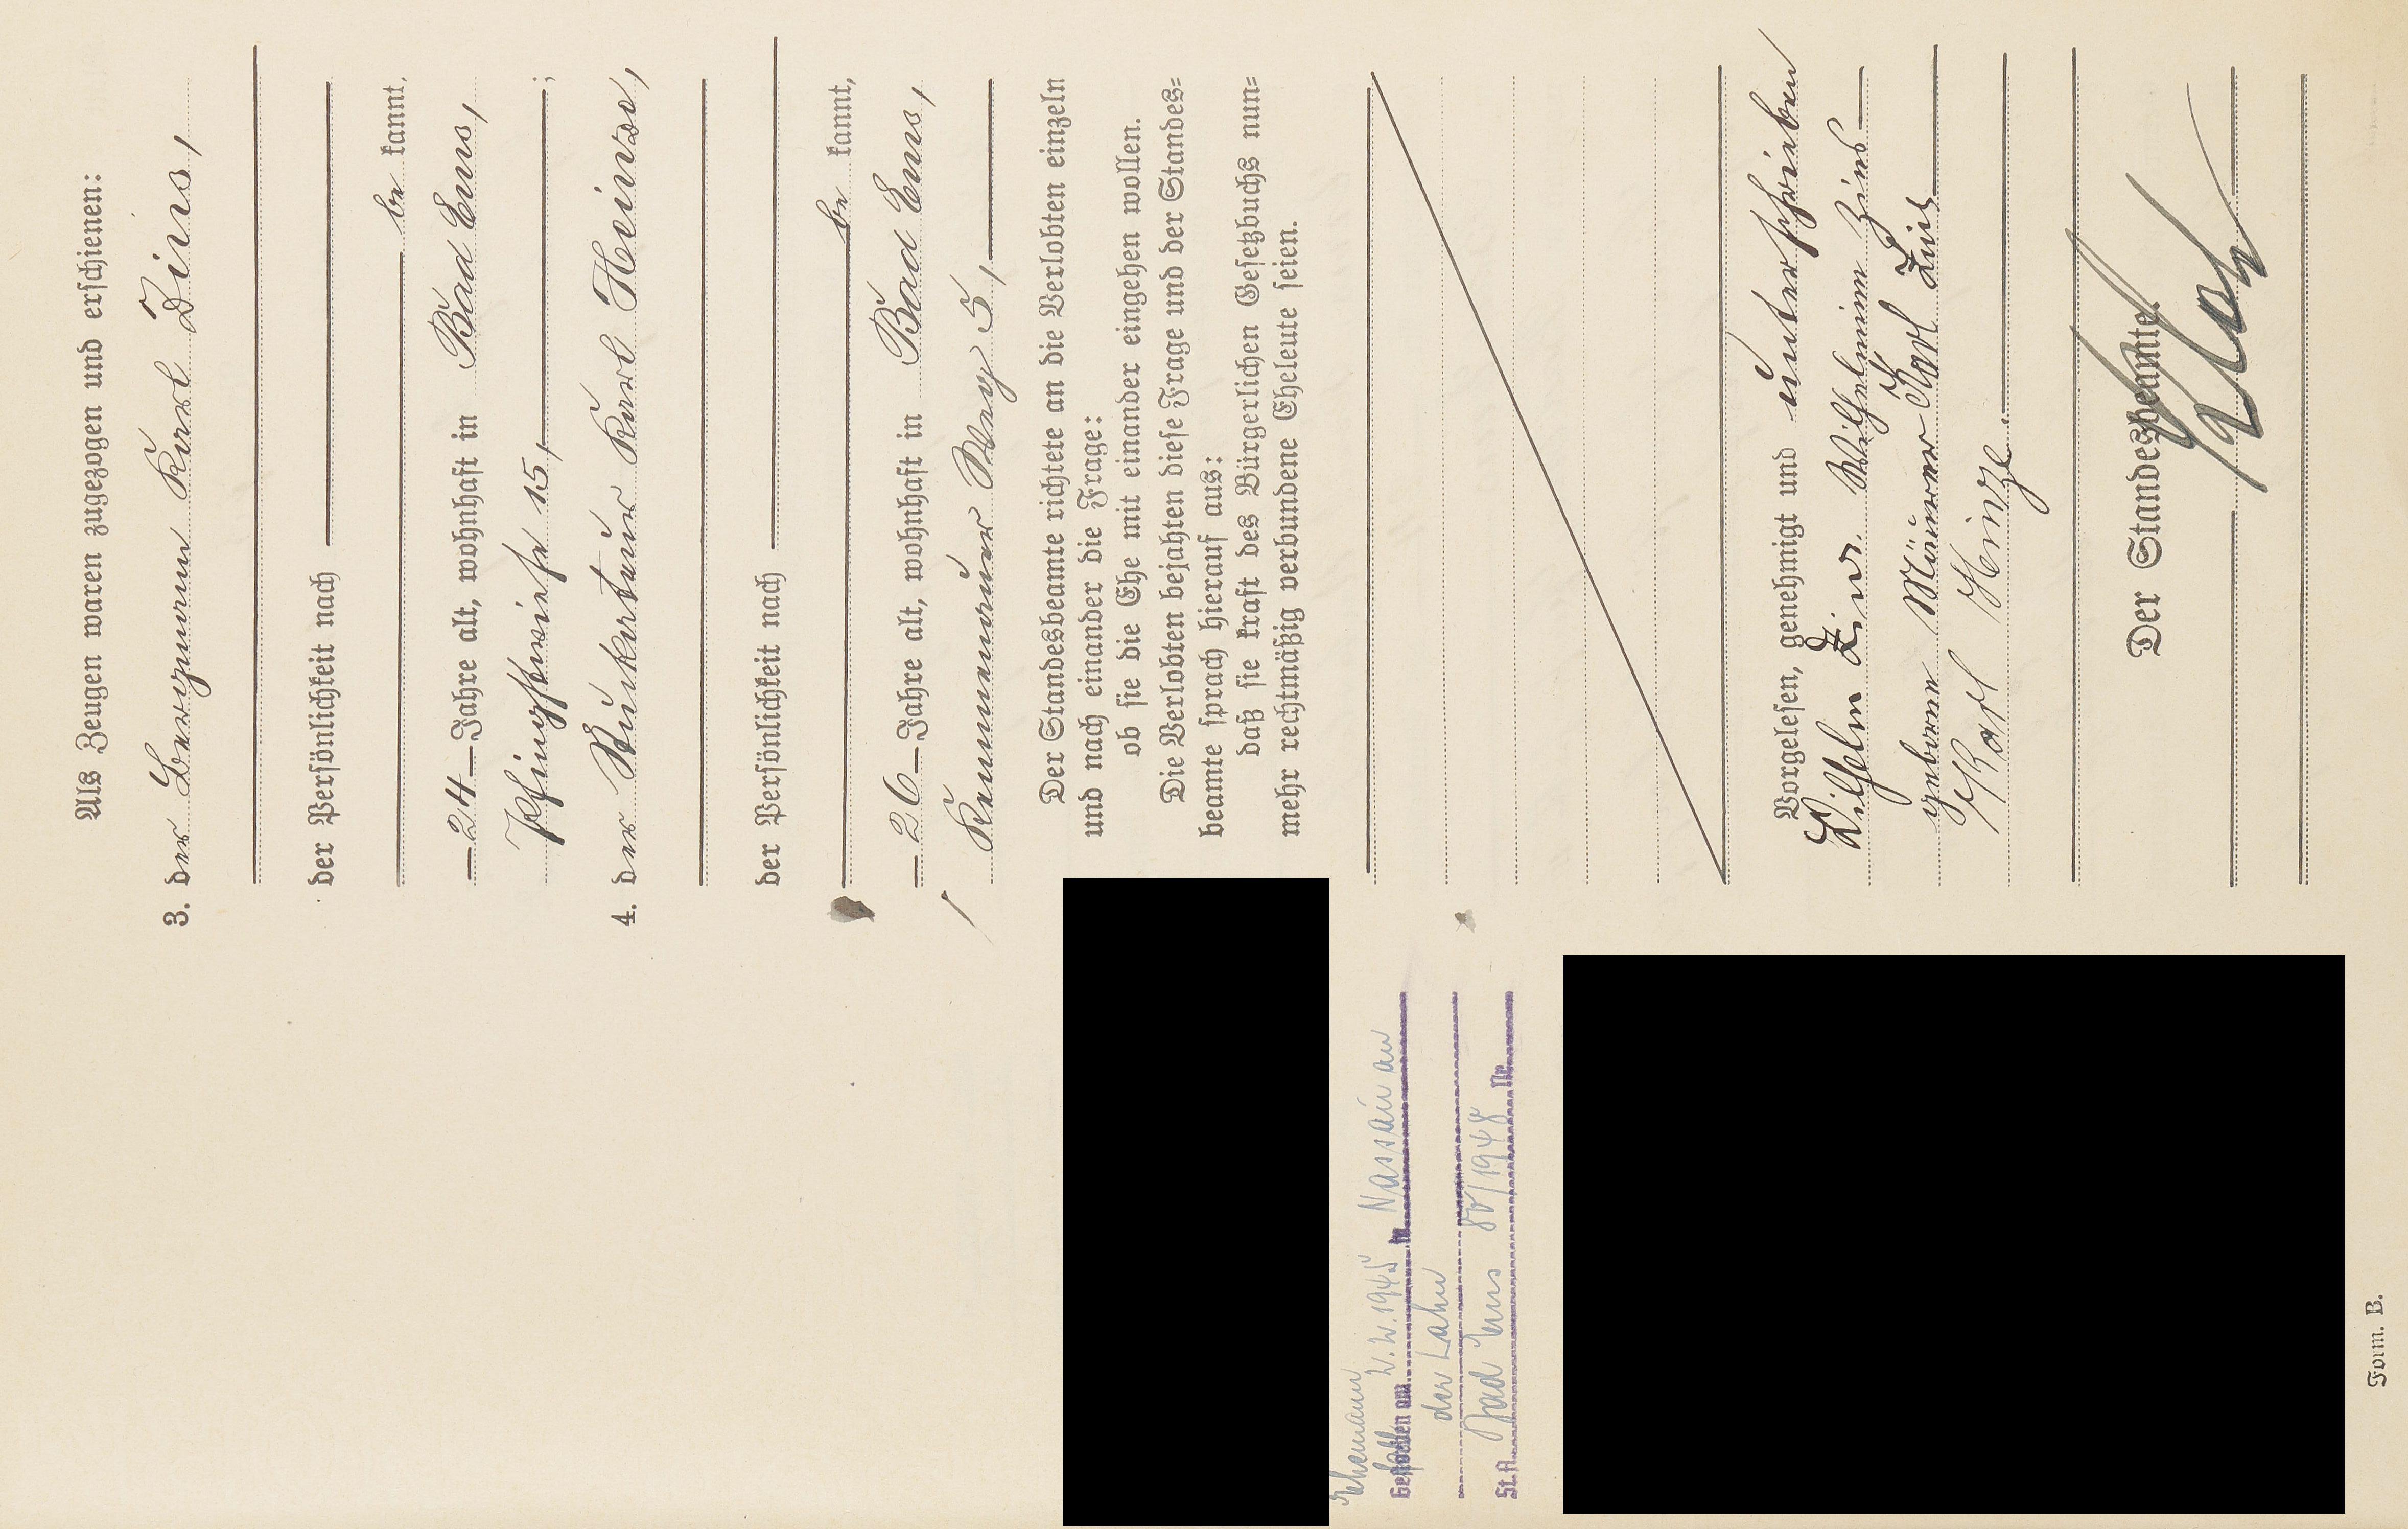 Als Zeugen waren zugezogen und erschienen:
3. der Bergmann Karl Zins,
der Persönlichkeit nach
be kannt,
24 Jahre alt, wohnhaft in Bad Ems,
Pfingstwiese 15, ;
4. der Karl Heinze,
der Persönlichkeit nach
be kannt,
26 Jahre alt, wohnhaft in Bad Ems,
Kemmenauer Weg 5,
Der Standesbeamte richtete an die Verlobten einzeln
und nach einander die Frage:
ob sie die Ehe mit einander eingehen wollen.
Die Verlobten bejahten diese Frage und der Standes=
beamte sprach hierauf aus:
daß sie kraft des Bürgerlichen Gesetzbuchs nun=
mehr rechtmäßig verbundene Eheleute seien.
Vorgelesen, genehmigt und unterschrieben
Wilhelm Zins. Wilhelmine Zins
geborene Maurer Karl Zins
Karl Heinze.
Der Standesbeamte.
Ehemann
Gestorben am 2.2.1945 in Nassau an
der Lahn
St.A. Bad Ems 80/1948 Nr.
Form. B.